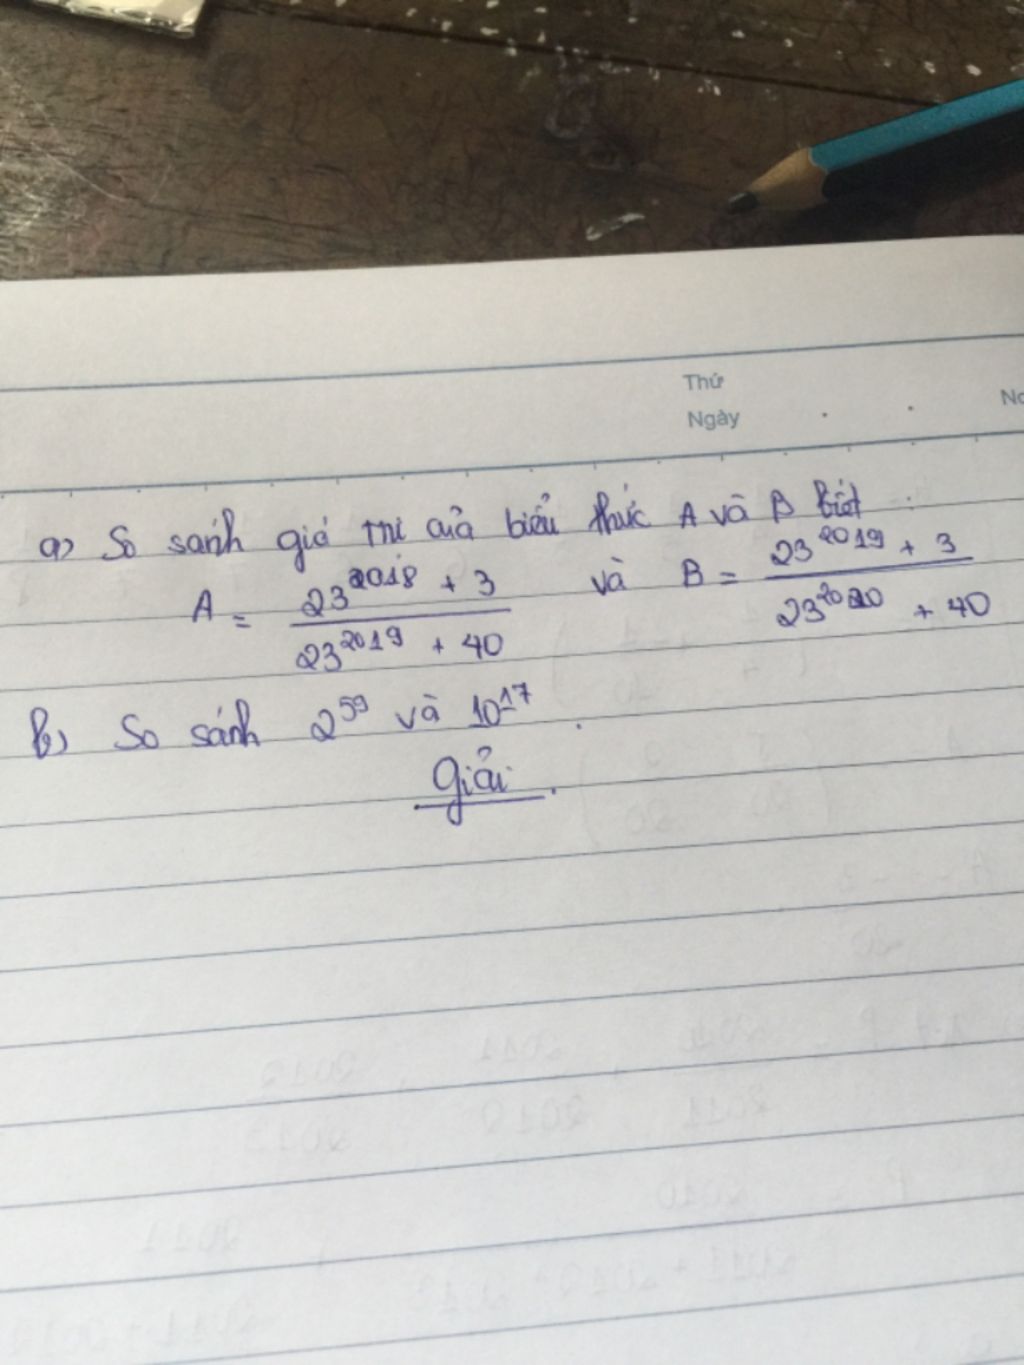 Thứ
Ngày
a) So sánh giá trị của biểu thức A và B biết :
A = (23^2018 + 3) / (23^2019 + 40) và B = (23^2019 + 3) / (23^2020 + 40)
b) So sánh 2^59 và 10^17.
Giải.